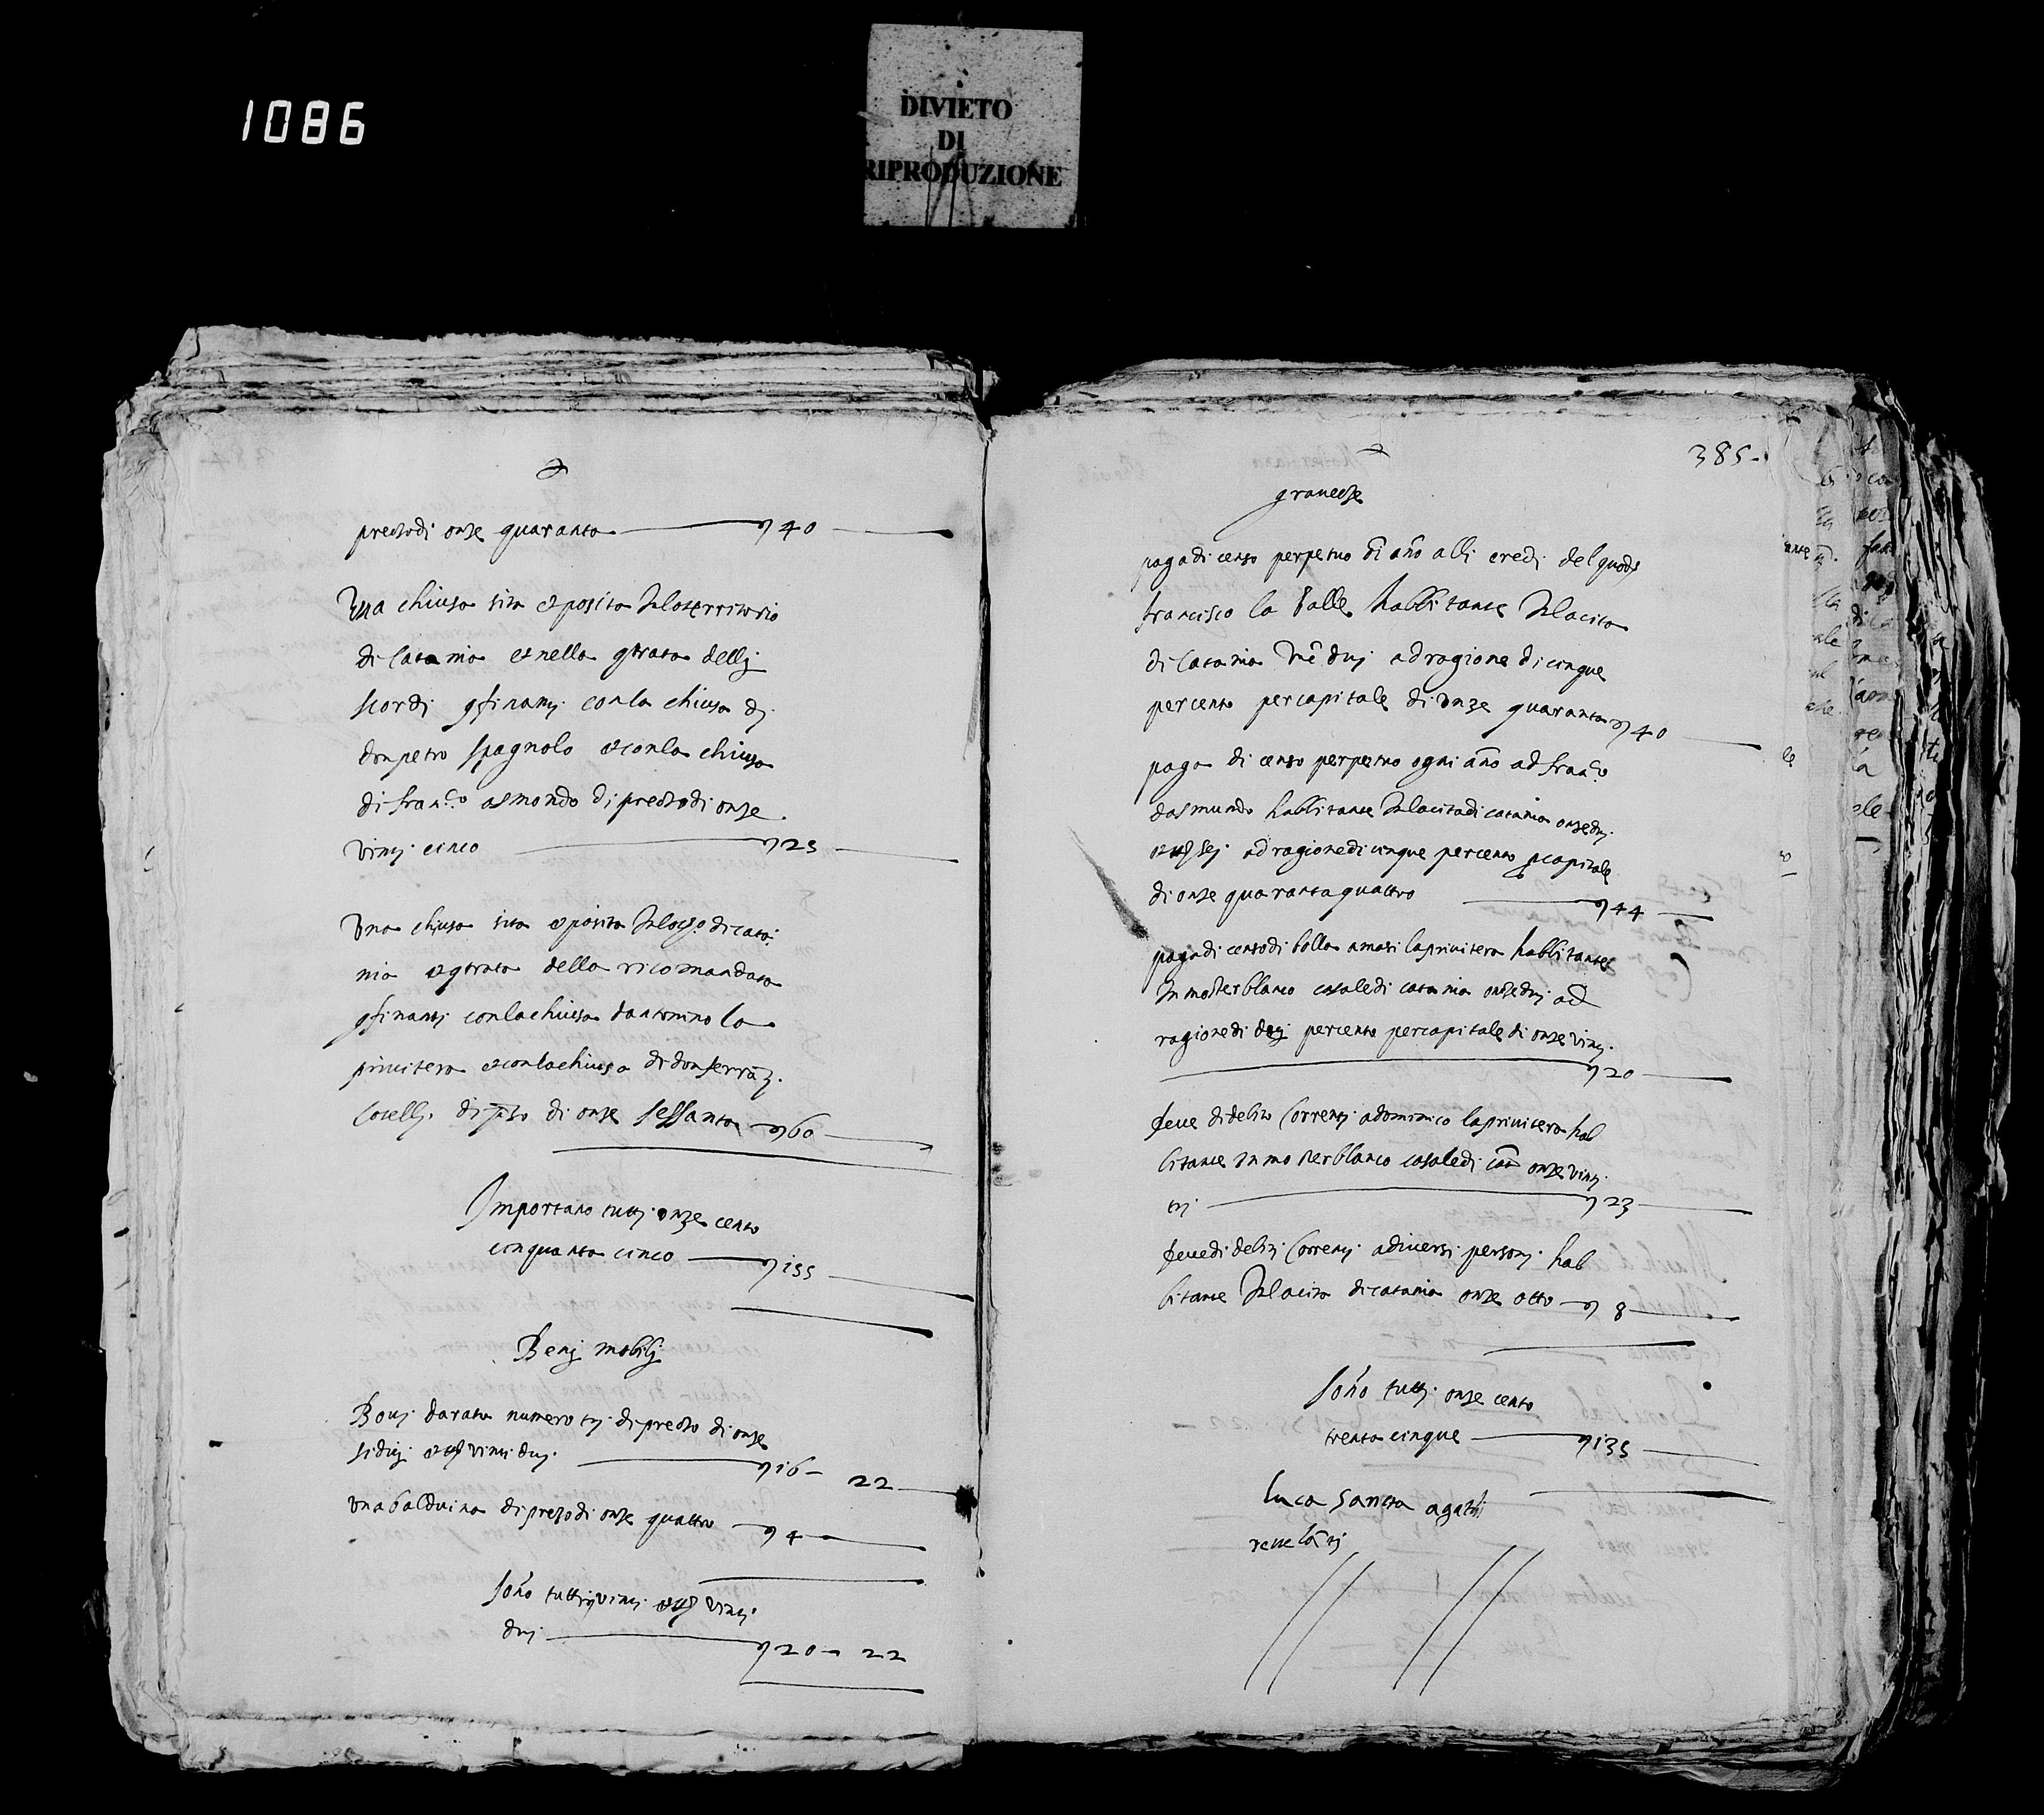 1086
DIVIETO
DI
RIPRODUZIONE
prezzo di onze quaranta 40
Una chiusa sita et posita in lo territorio
di Catania et nella gtrata dellj
scordi gfinantj con la chiusa dj
don petro spagnolo et con la chiusa
di franco asmondo di prezzo di onze
vintj cinco 25
Una chiusa sita et posita di cata
nia et gtrata della ricomandata
gfinantj con la chiusa dantonino la
privitera et con la chiusa di don
di onze sessanta 60
Importano tuttj onze cento
cinquanta cinco 155
Benj mobilj
Bovj darata numero trj di prezzo di onze
sidicj vintj duj 16 22
una balduina di prezo di onze quattro 4
sonno tuttj vintj vintj
duj 20 22
385
graveze
paga di censo perpetuo alli eredi del
francisco la Valle habbitante in la cita
di Catania duj ad ragione di cinque
per cento per capitale di onze quaranta 40
paga di censo perpetuo ogni anno ad franco
dasmundo habbitante in la cita di catania onze duj
sej ad ragione di cinque per cento p capitale
di onze quaranta quattro 44
paga di censo di bolla a masi la privitera habbitante
in mosterblanco casale di catania onze duj ad
ragione di decj per cento per capitale di onze vintj
20
deve di delito correntj a dominico la privitera hab
bitante in mosterblanco casale di onze vintj
trj 23
deve di deliti correntj a diversi personj hab
bitante in la cita di catania onze otto 8
sonno tuttj onze cento
trenta cinque 135
luca sancta agathi